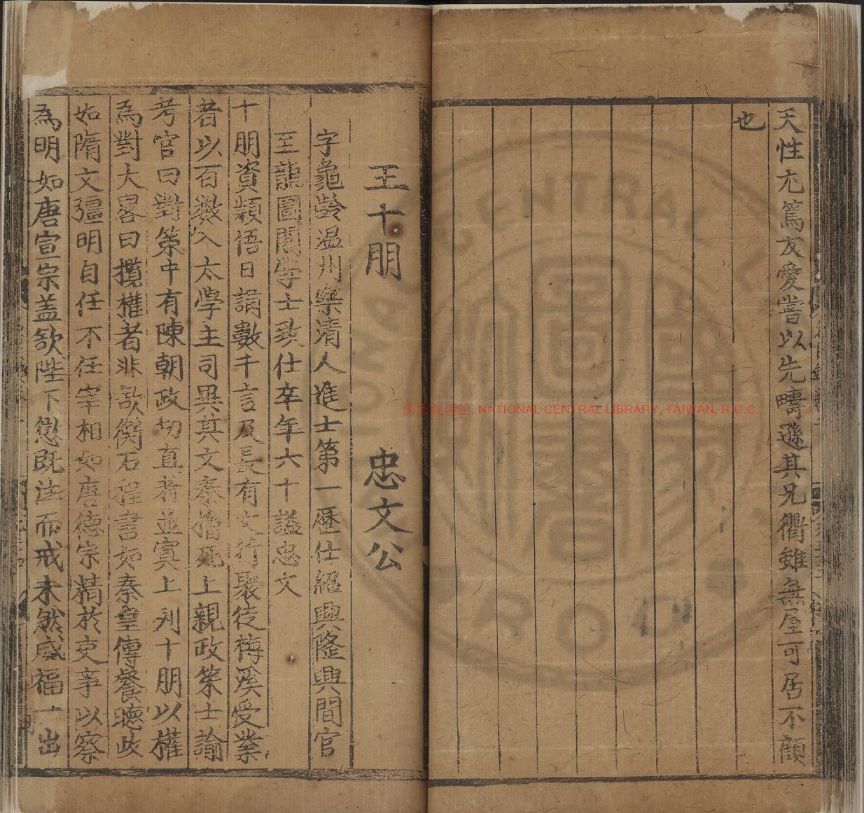 天性尤篤友愛嘗以先疇遜其兄衢雖無屋可居不顧
也
王十朋 忠文公
字龜齡温州樂清人進士第一歷仕紹興隆興間官
至龍圖閣學士致仕卒年六十謚忠文
十朋資頴悟日誦數千言及長有文行聚徒梅溪受業
者以百數入太學主司異其文秦檜死上親政策士諭
考官曰對策中有陳朝政切直者並寘上列十朋以權
為對大畧曰攬權者非欲衡石程書如秦皇傳餐聴政
如隋文彊明自任不任宰相如唐德宗精於吏事以察
為明如唐宣宗盖欲陛下懲既往而戒未然威福一出
NATIONAL CENTRAL LIBRARY, TAIWAN, R.O.C.